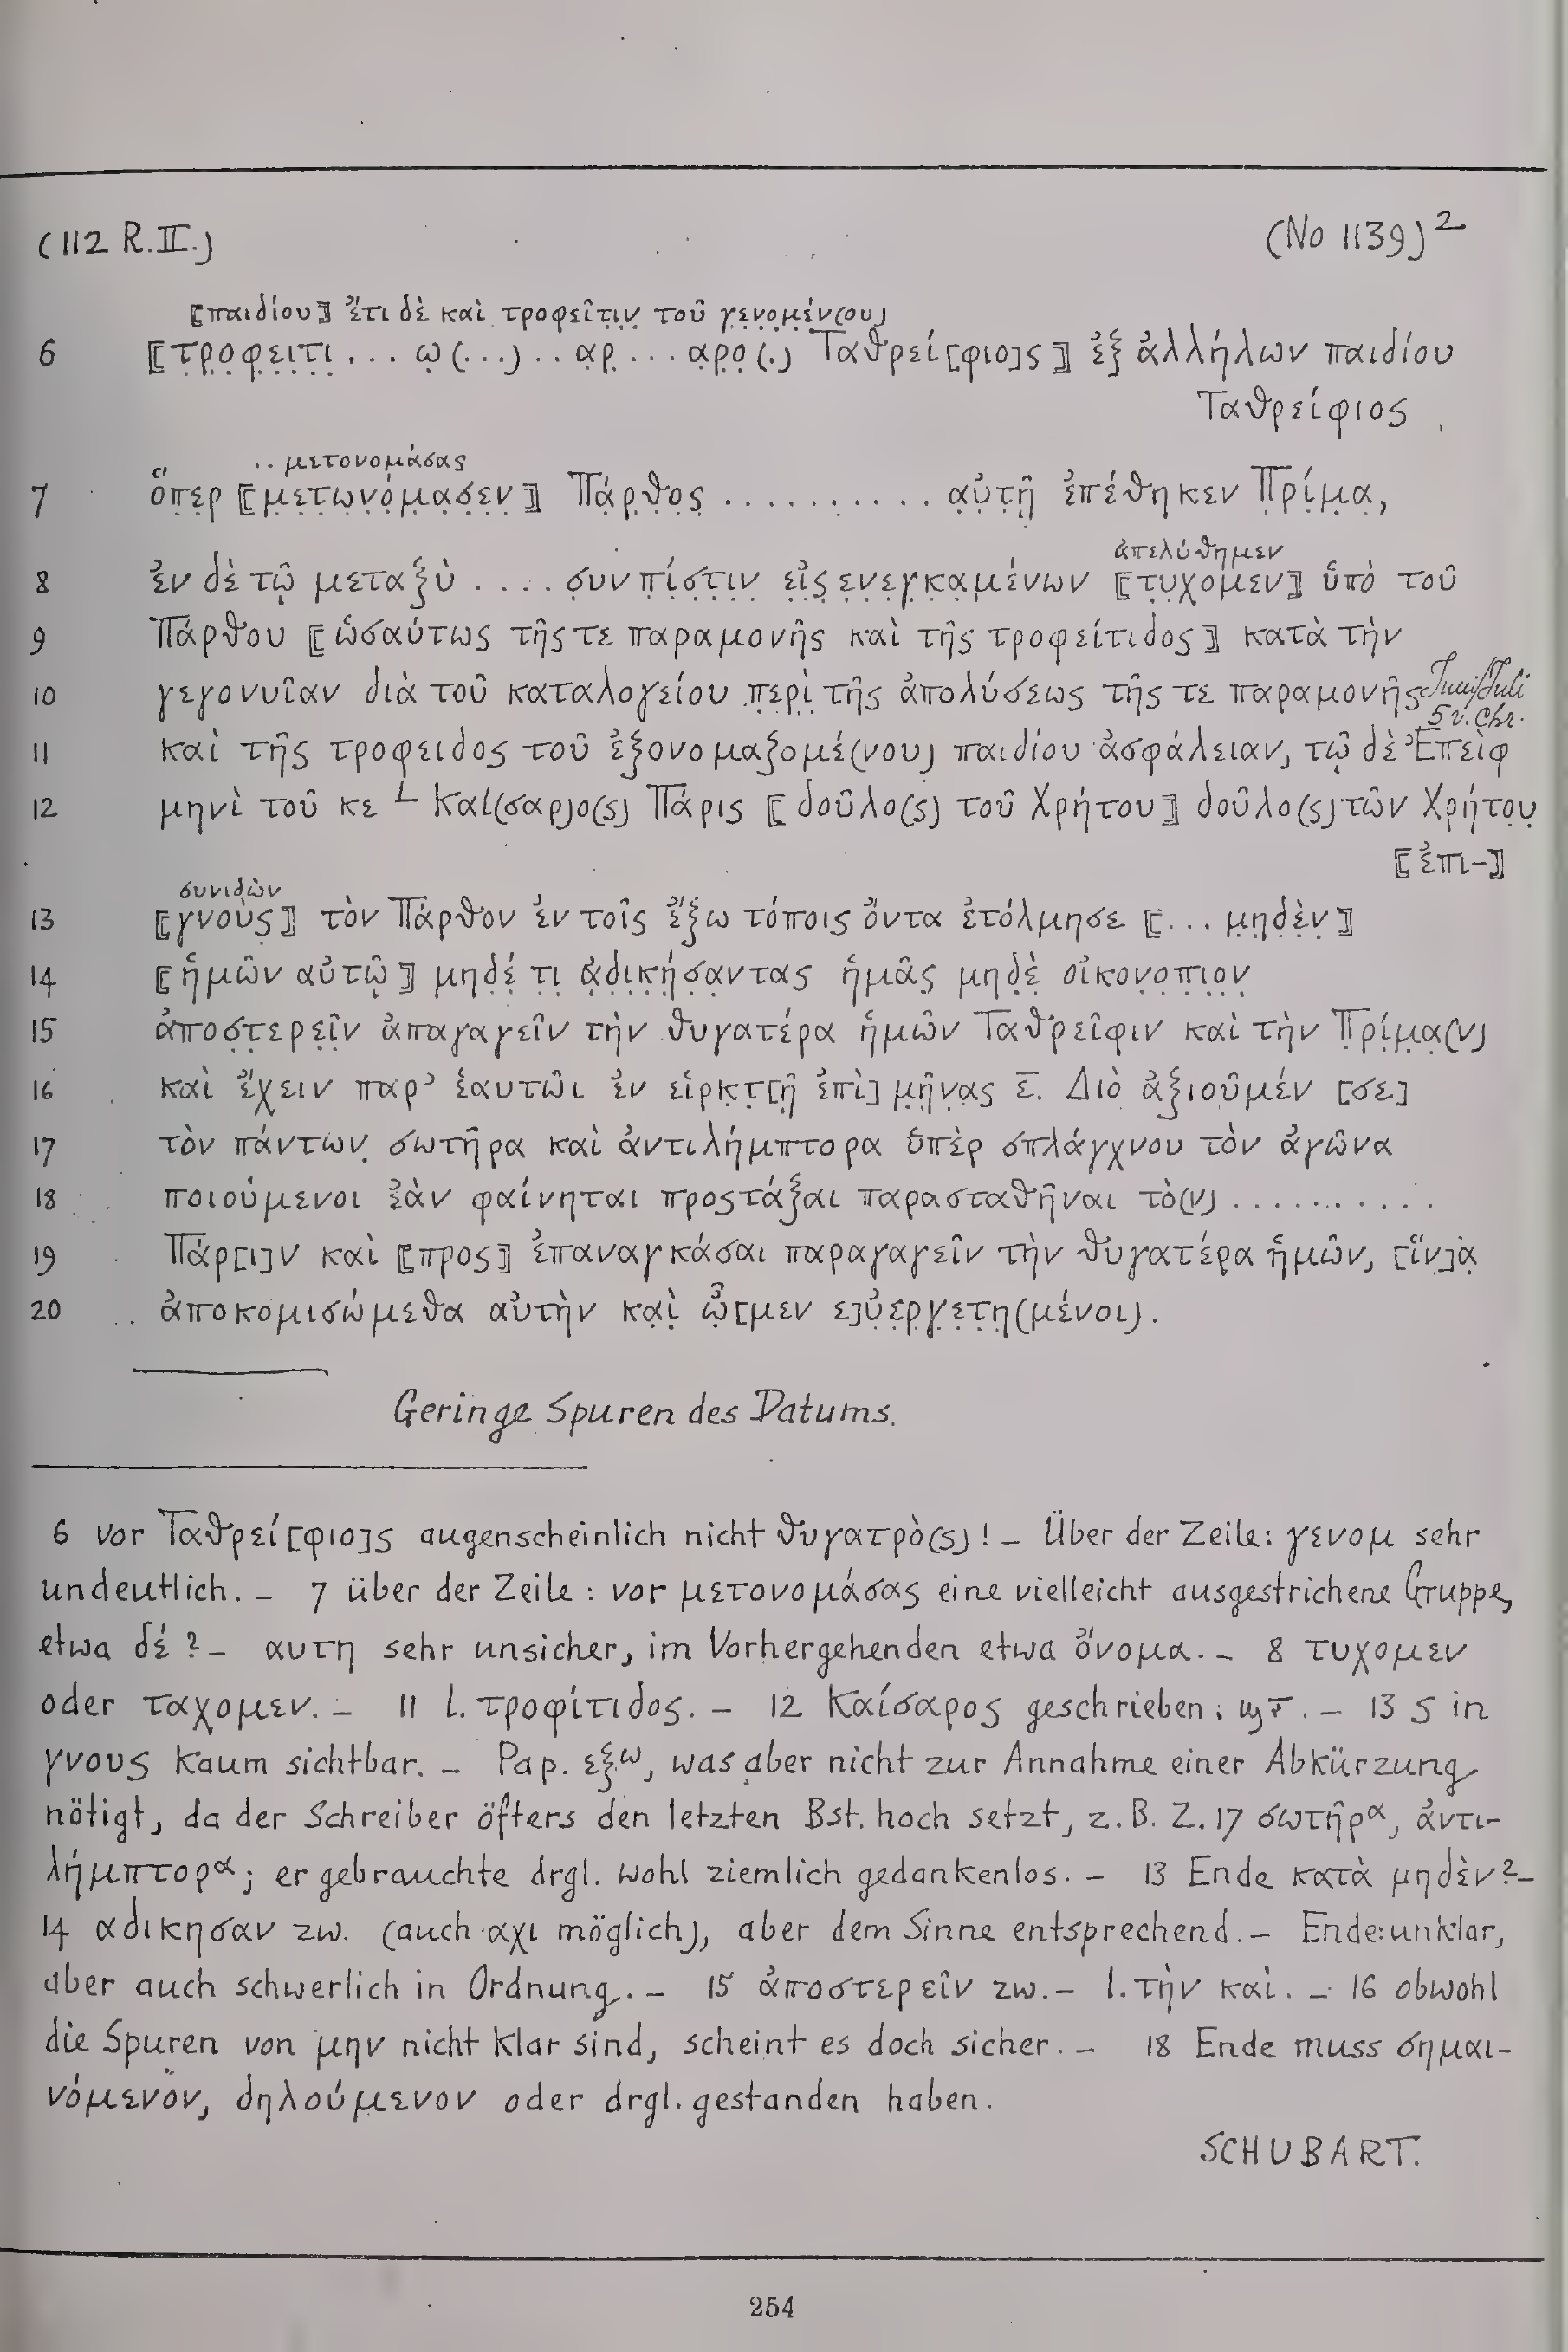 (112 R.II.) (No 1139)²
⟦παιδίου⟧ ἔτι δὲ καὶ τροφεῖτιν τοῦ γενομέν(ου)
6 ⟦τ̣ρ̣ο̣φ̣ε̣ι̣τ̣ι̣ ... ω̣(...) .. α̣ρ̣ ... α̣ρ̣ο̣(.) Ταθρεί[φιο]ς⟧ ἐξ ἀλλήλων παιδίου
Ταθρείφιος
.. μετονομάσας
7 ὅπ̣ε̣ρ̣ ⟦μ̣ε̣τ̣ω̣ν̣ό̣μ̣α̣σ̣ε̣ν̣⟧ Π̣ά̣ρ̣θ̣ο̣ς̣ .......... α̣ὐ̣τ̣ῇ̣ ἐπέθηκεν Π̣ρ̣ί̣μ̣α̣,
ἀπελύθημεν
8 ἐν δὲ τῷ μεταξὺ .... σ̣υν π̣ί̣σ̣τ̣ι̣ν̣ ε̣ἰ̣ς̣ ε̣ν̣ε̣γ̣κ̣α̣μένων ⟦τ̣υ̣χ̣ο̣μεν⟧ ὑπὸ τοῦ
9 Πάρθου ⟦ὡσαύτως τῆς τε παραμονῆς καὶ τῆς τροφείτιδος⟧ κατὰ τὴν
10 γεγονυῖαν διὰ τοῦ καταλογείου π̣ε̣ρ̣ὶ̣ τῆς ἀπολύσεως τῆς τε παραμονῆς Juni/Juli
5 v. Chr.
11 καὶ τῆς τροφειδος τοῦ ἐξονομαζομέ(νου) παιδίου ἀσφάλειαν, τῷ δὲ Ἐπεὶφ
12 μηνὶ τοῦ κε └ Καί(σαρ)ο(ς) Πάρις ⟦δοῦλο(ς) τοῦ Χρήτου⟧ δοῦλο(ς) τῶν Χρήτο̣υ̣
⟦ἐπι-⟧
συνιδὼν
13 ⟦γνοὺς̣⟧ τὸν Πάρθον ἐν τοῖς ἔξω τόποις ὄντα ἐτόλμησε ⟦... μ̣η̣δ̣ὲ̣ν̣⟧
14 ⟦ἡμῶν αὐτῷ⟧ μηδέ̣ τ̣ι̣ ἀ̣δ̣ι̣κ̣ή̣σ̣α̣ντας ἡμᾶς̣ μηδ̣ὲ̣ οἰκον̣ο̣π̣ι̣ο̣ν̣
15 ἀποσ̣τ̣ε̣ρ̣ε̣ῖ̣ν ἀπαγαγεῖν τὴν θυγατέρα ἡμῶν Ταθρεῖφιν καὶ τὴν Π̣ρ̣ί̣μ̣α̣(ν)
16 καὶ ἔχειν παρ’ ἑαυτῶι ἐν εἱρκ̣τ̣[ῇ ἐπὶ] μ̣ῆ̣ν̣α̣ς ε̅. Διὸ ἀξιοῦμέν [σε]
17 τὸν πάντων̣ σωτῆρα καὶ ἀντιλήμπτορα ὑπὲρ σπλάγχνου τὸν ἀγῶνα
18 ποιούμενοι ἐὰν φαίνηται προςτάξαι παρασταθῆναι τὸ(ν) ..........
19 Πάρ[ι]ν καὶ ⟦προς⟧ ἐπαναγκάσαι παραγαγεῖν τὴν θυγατέρα ἡμῶν, [ἵν]α̣
20 ἀποκομισώμεθα αὐτὴν κα̣ὶ̣ ὦ̣[μεν ε]ὐ̣ε̣ρ̣γ̣ε̣τ̣η̣(μένοι).
Geringe Spuren des Datums.
6 vor Ταθρεί[φιο]ς augenscheinlich nicht θυγατρὸ(ς)! – Über der Zeile: γενομ sehr
undeutlich. – 7 über der Zeile: vor μετονομάσας eine vielleicht ausgestrichene Gruppe,
etwa δέ? – αυτη sehr unsicher, im Vorhergehenden etwa ὄνομα. – 8 τυχομεν
oder ταχομεν. – 11 l. τροφίτιδος. – 12 Καίσαρος geschrieben: . – 13 ς in
γνους kaum sichtbar. – Pap. εξ^ω, was aber nicht zur Annahme einer Abkürzung
nötigt, da der Schreiber öfters den letzten Bst. hoch setzt, z. B. Z. 17 σωτῆρ^α, ἀντι-
λήμπτορ^α; er gebrauchte drgl. wohl ziemlich gedankenlos. – 13 Ende κατὰ μηδὲν? –
14 αδικησαν zw. (auch αχι möglich), aber dem Sinne entsprechend. – Ende: unklar,
aber auch schwerlich in Ordnung. – 15 ἀποστερεῖν zw. – l. τὴν καὶ. – 16 obwohl
die Spuren von μην nicht klar sind, scheint es doch sicher. – 18 Ende muss σημαι-
νόμενον, δηλούμενον oder drgl. gestanden haben.
SCHUBART.
254